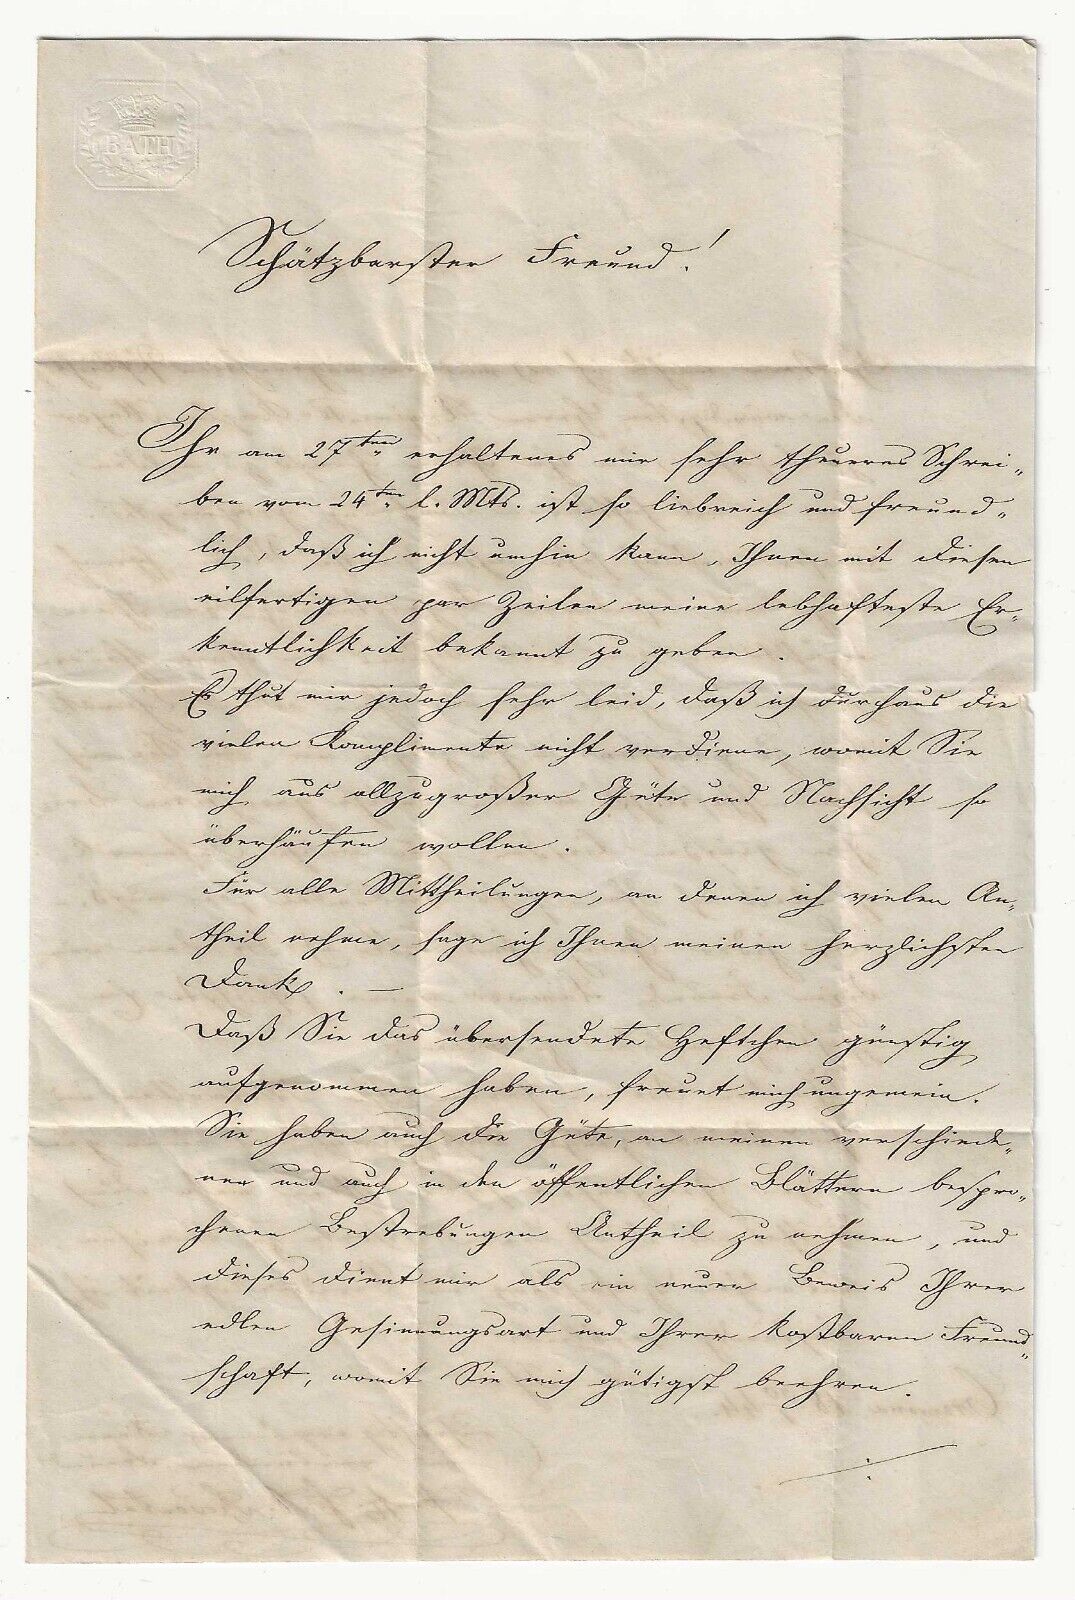 BATH
Schätzbarster Freund!
Ihr am 27ten erhaltenes mir sehr theueres Schrei-
ben vom 24ten l. Mts. ist so liebreich und freund-
lich, daß ich nicht umhin kann, Ihnen mit diesen
eilfertigen par Zeilen meine lebhafteste Er-
kenntlichkeit bekannt zu geben.
Es thut mir jedoch sehr leid, daß ich durchaus die
vielen Komplimente nicht verdiene, womit Sie
mich aus allzugroßer Güte und Nachsicht so
überhäufen wollen.
Für alle Mittheilungen, an denen ich vielen An-
theil nehme, sage ich Ihnen meinen herzlichsten
Dank. —
Daß Sie das übersendete Heftchen günstig
aufgenommen haben, freuet mich ungemein.
Sie haben auch die Güte, an meinen verschiede-
nen und auch in den öffentlichen Blättern bespro-
chenen Bestrebungen Antheil zu nehmen, und
dieses dient mir als ein neuer Beweis Ihrer
edlen Gesinnungsart und Ihrer kostbaren Freund-
schaft, womit Sie mich gütigst beehren.